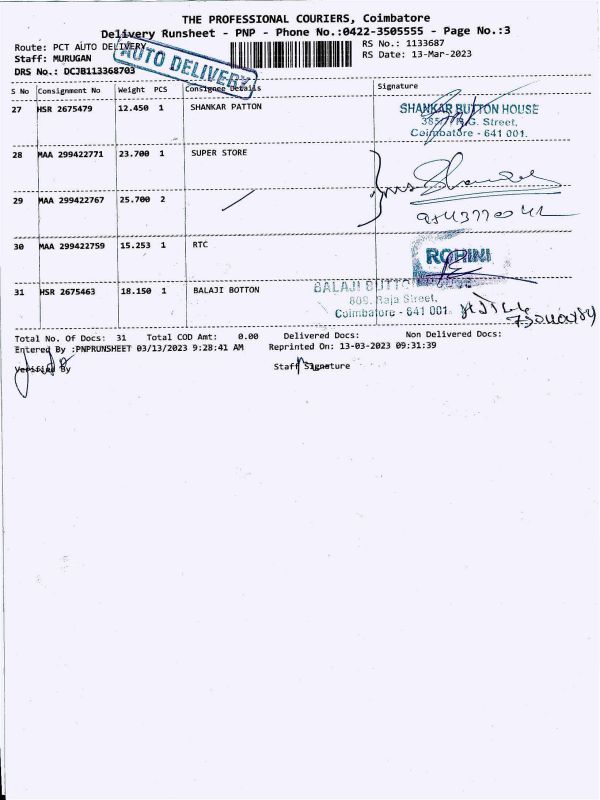 THE PROFESSIONAL COURIERS, Coimbatore
Delivery Runsheet - PNP - Phone No.:0422-3505555 - Page No.:3
Route: PCT AUTO DELIVERY
RS No.: 1133687
Staff: MURUGAN
RS Date: 13-Mar-2023
DRS No.: DCJB113368703
AUTO DELIVERY
S No Consignment No Weight PCS Consignee Details Signature
27 HSR 2675479 12.450 1 SHANKAR PATTON
SHANKAR BUTTON HOUSE
R.G. Street,
Coimbatore - 641 001.
28 MAA 299422771 23.700 1 SUPER STORE
29 MAA 299422767 25.700 2
30 MAA 299422759 15.253 1 RTC
ROHINI
31 HSR 2675463 18.150 1 BALAJI BOTTON
BALAJI
Raja Street,
Coimbatore - 641 001.
Total No. Of Docs: 31 Total COD Amt: 0.00 Delivered Docs: Non Delivered Docs:
Entered By :PNPRUNSHEET 03/13/2023 9:28:41 AM Reprinted On: 13-03-2023 09:31:39
Verified By
Staff Signature